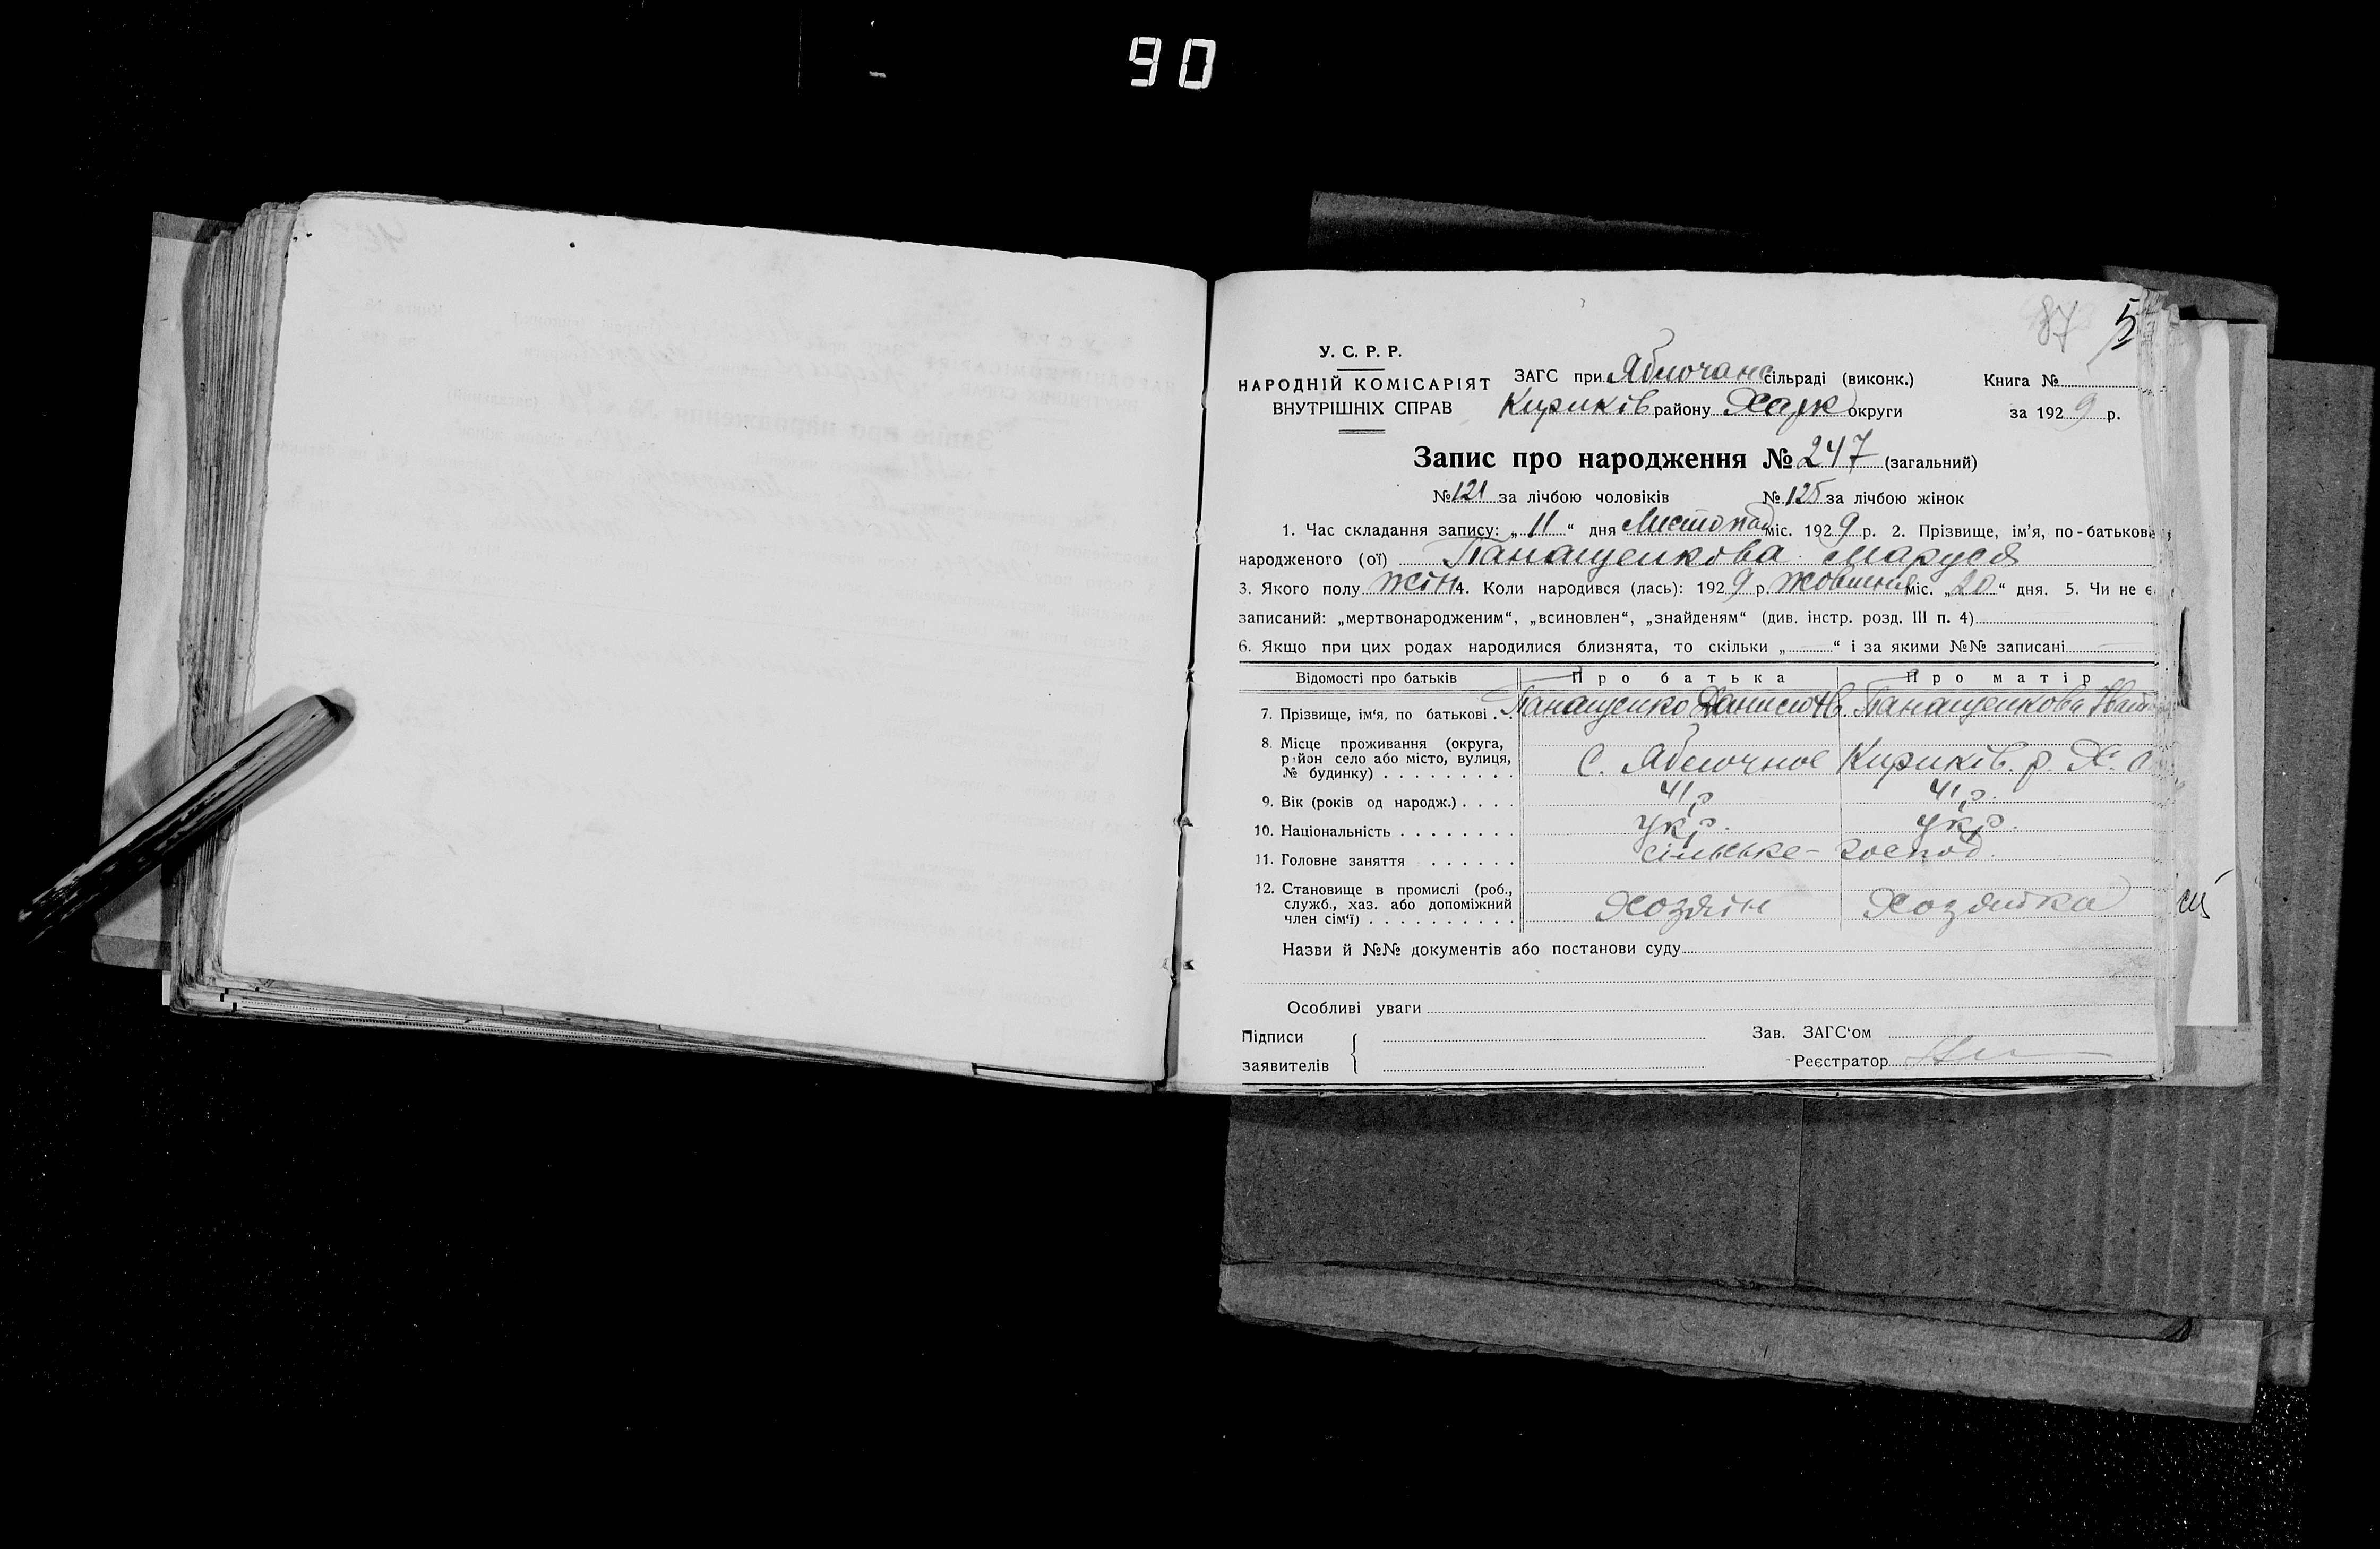 90
87 5
У. С. Р. Р.
НАРОДНІЙ КОМІСАРІЯТ
ВНУТРІШНІХ СПРАВ
ЗАГС при Яблочанс сільраді (виконк.) Книга №
Кириків району Харк округи за 1929 р.
Запис про народження № 247 (загальний)
№ 121 за лічбою чоловіків № 125 за лічбою жінок
1. Час складання запису: „11“ дня Листопад міс. 1929 р. 2. Прізвище, ім'я, по-батькові
народженого (ої) Панащенкова Маруся
3. Якого полу жін 4. Коли народився (лась): 1929 р. жовтня міс. „20“ дня. 5. Чи не є
записаний: „мертвонародженим“, „всиновлен“, „знайденям“ (див. інстр. розд. III п. 4)
6. Якщо при цих родах народилися близнята, то скільки „ “ і за якими №№ записані
Відомості про батьків Про батька Про матір
7. Прізвище, ім'я, по батькові . . Панащенко Данило Ів. Панащенкова
8. Місце проживання (округа,
район село або місто, вулиця,
№ будинку) . . . . . . . . . С. Яблочное Кириків. р. Х. О
9. Вік (років од народж.) . . . . 41 р 41 р.
10. Національність . . . . . . . . укр. укр.
11. Головне заняття . . . . . . сільське-господ.
12. Становище в промислі (роб.,
служб., хаз. або допоміжний
член сім'ї) . . . . . . . . . . Хозяін Хозяйка
Назви й №№ документів або постанови суду
Особливі уваги
Підписи
заявителів
Зав. ЗАГС'ом
Реєстратор